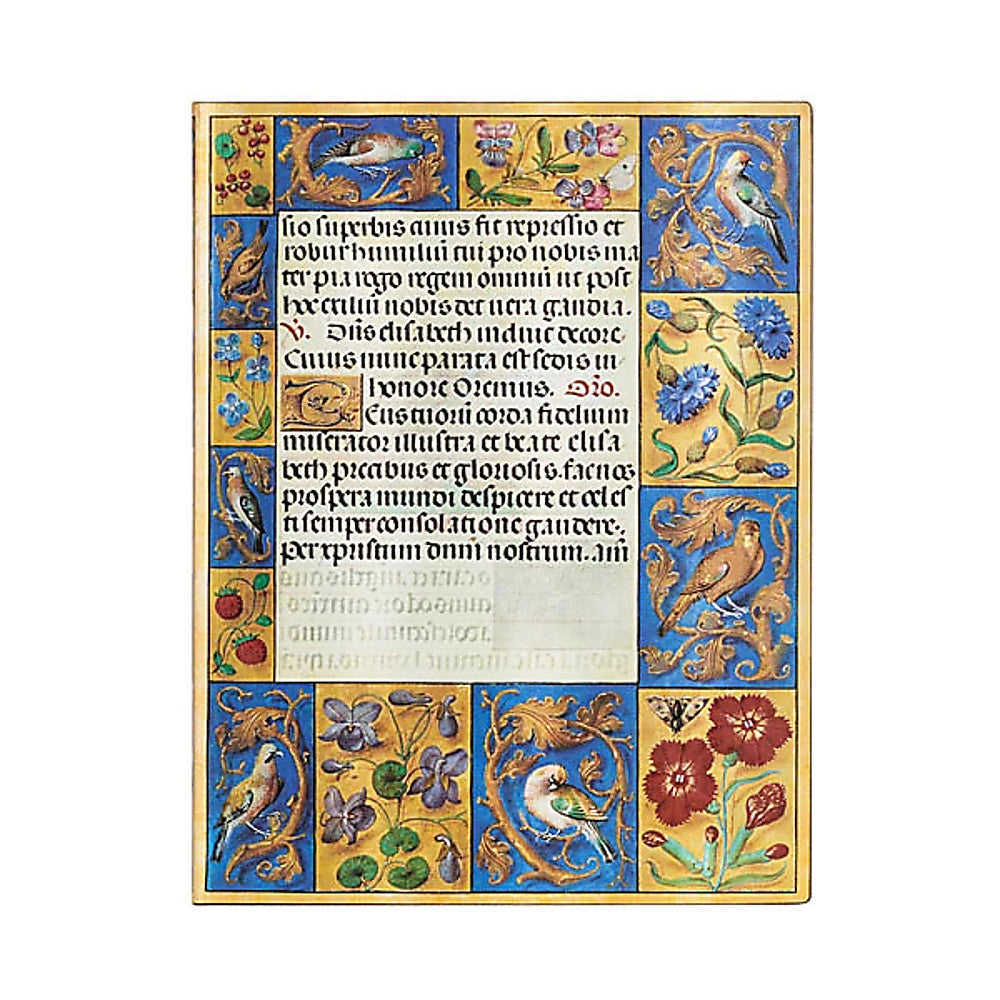 sio superbis cuius fit repressio et
robur humiliū tui pro nobis ma
ter pia rogo regem omniū ut post
hoc exiliū nobis det vera gaudia.
V. Diis elisabeth induit decore
Cuius nunc parata est sedis in
honore Oremus. Oro.
Deus tuorū corda fidelium
miserator illustra et beate elisa
beth precibus et gloriosis. fac nos
prospera mundi despicere et celes
ti semper consolatione gaudere.
Per xpistum dnm̄ nostrum. am̄